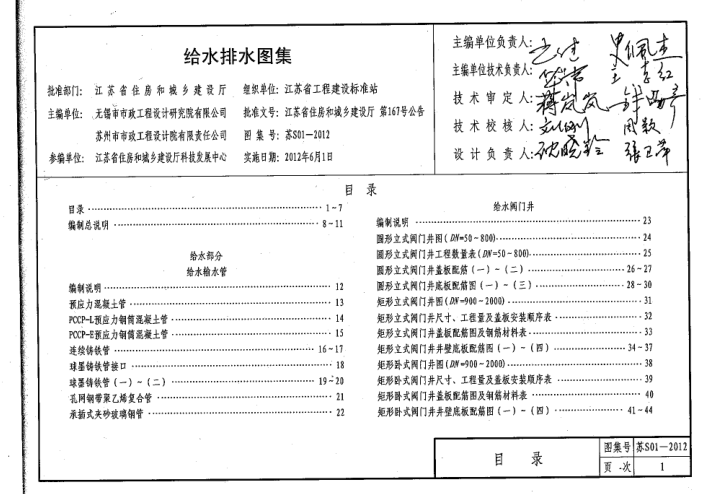 给水排水图集
批准部门: 江苏省住房和城乡建设厅
组织单位: 江苏省工程建设标准站
主编单位: 无锡市市政工程设计研究院有限公司
批准文号: 江苏省住房和城乡建设厅 第167号公告
苏州市市政工程设计院有限责任公司
图集号: 苏S01—2012
参编单位: 江苏省住房和城乡建设厅科技发展中心
实施日期: 2012年6月1日
主编单位负责人:
主编单位技术负责人:
技术审定人:
技术校核人:
设计负责人:
目录
目录 1~7
编制总说明 8~11
给水部分
给水输水管
编制说明 12
预应力混凝土管 13
PCCP-L预应力钢筒混凝土管 14
PCCP-E预应力钢筒混凝土管 15
连续铸铁管 16~17
球墨铸铁管接口 18
球墨铸铁管(一)~(二) 19~20
孔网钢带聚乙烯复合管 21
承插式夹砂玻璃钢管 22
给水阀门井
编制说明 23
圆形立式阀门井图(DN=50~800) 24
圆形立式阀门井工程数量表(DN=50~800) 25
圆形立式阀门井盖板配筋(一)~(二) 26~27
圆形立式阀门井底板配筋图(一)~(三) 28~30
矩形立式阀门井图(DN=900~2000) 31
矩形立式阀门井尺寸、工程量及盖板安装顺序表 32
矩形立式阀门井盖板配筋图及钢筋材料表 33
矩形立式阀门井井壁底板配筋图(一)~(四) 34~37
矩形卧式阀门井图(DN=900~2000) 38
矩形卧式阀门井尺寸、工程量及盖板安装顺序表 39
矩形卧式阀门井盖板配筋图及钢筋材料表 40
矩形卧式阀门井井壁底板配筋图(一)~(四) 41~44
目录
图集号 苏S01—2012
页次 1